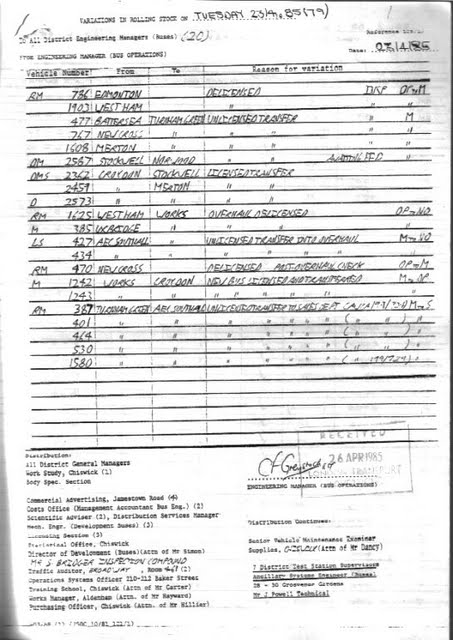 VARIATIONS IN ROLLING STOCK ON TUESDAY 23/4/85 (79)
To All District Engineering Managers (Buses) (20)
Reference
FROM ENGINEERING MANAGER (BUS OPERATIONS)
Date:
Vehicle Number From To Reason for variation
RM 786 EDMONTON DELICENSED
1903 WEST HAM " "
477 BATTERSEA TURNHAM GREEN UNLICENSED TRANSFER M
767 NEW CROSS " " "
1608 MERTON " " "
DM 2587 STOCKWELL NORWOOD " "
DMS 2362 CROYDON STOCKWELL LICENSED TRANSFER
2459 " MERTON " "
D 2573 " " " "
RM 1625 WEST HAM WORKS OVERHAUL DELICENSED
M 385 UXBRIDGE " " "
LS 427 AEC SOUTHALL " UNLICENSED TRANSFER INTO OVERHAUL
434 " " " " "
RM 470 NEW CROSS DELICENSED POST OVERHAUL CHECK
M 1242 WORKS CROYDON NEW BUS LICENSED AND TRANSFERRED
1243 " " " " "
RM 387 TURNHAM GREEN AEC SOUTHALL UNLICENSED TRANSFER TO SALES DEPT
401 " " " " "
464 " " " " "
530 " " " " "
1580 " " " " "
RECEIVED
26 APR 1985
LONDON TRANSPORT
ENGINEERING MANAGER (BUS OPERATIONS)
Distribution:
All District General Managers
Work Study, Chiswick (1)
Body Spec. Section
Commercial Advertising, Jamestown Road (4)
Costs Office (Management Accountant Bus Eng.) (2)
Scientific Adviser (2), Distribution Services Manager
Mech. Engr. (Development Buses) (3)
Licensing Section (3)
Statistical Office, Chiswick
Director of Development (Buses)(Attn of Mr Simon)
MR S. BRIDGER INSPECTION COMPOUND
Traffic Auditor, BROADWAY, Room
Operations Systems Officer 210-212 Baker Street
Training School, Chiswick (Attn of Mr Carter)
Works Manager, Aldenham (Attn of Mr Hayward)
Purchasing Officer, Chiswick (Attn of Mr Hillier)
Distribution Continues:
Senior Vehicle Maintenance Examiner
Supplies, CHISWICK (Attn of Mr Dancy)
7 District Test Station Supervisors
Ancillary Systems Engineer (Buses)
28 - 30 Grosvenor Gardens
Mr J Powell Technical